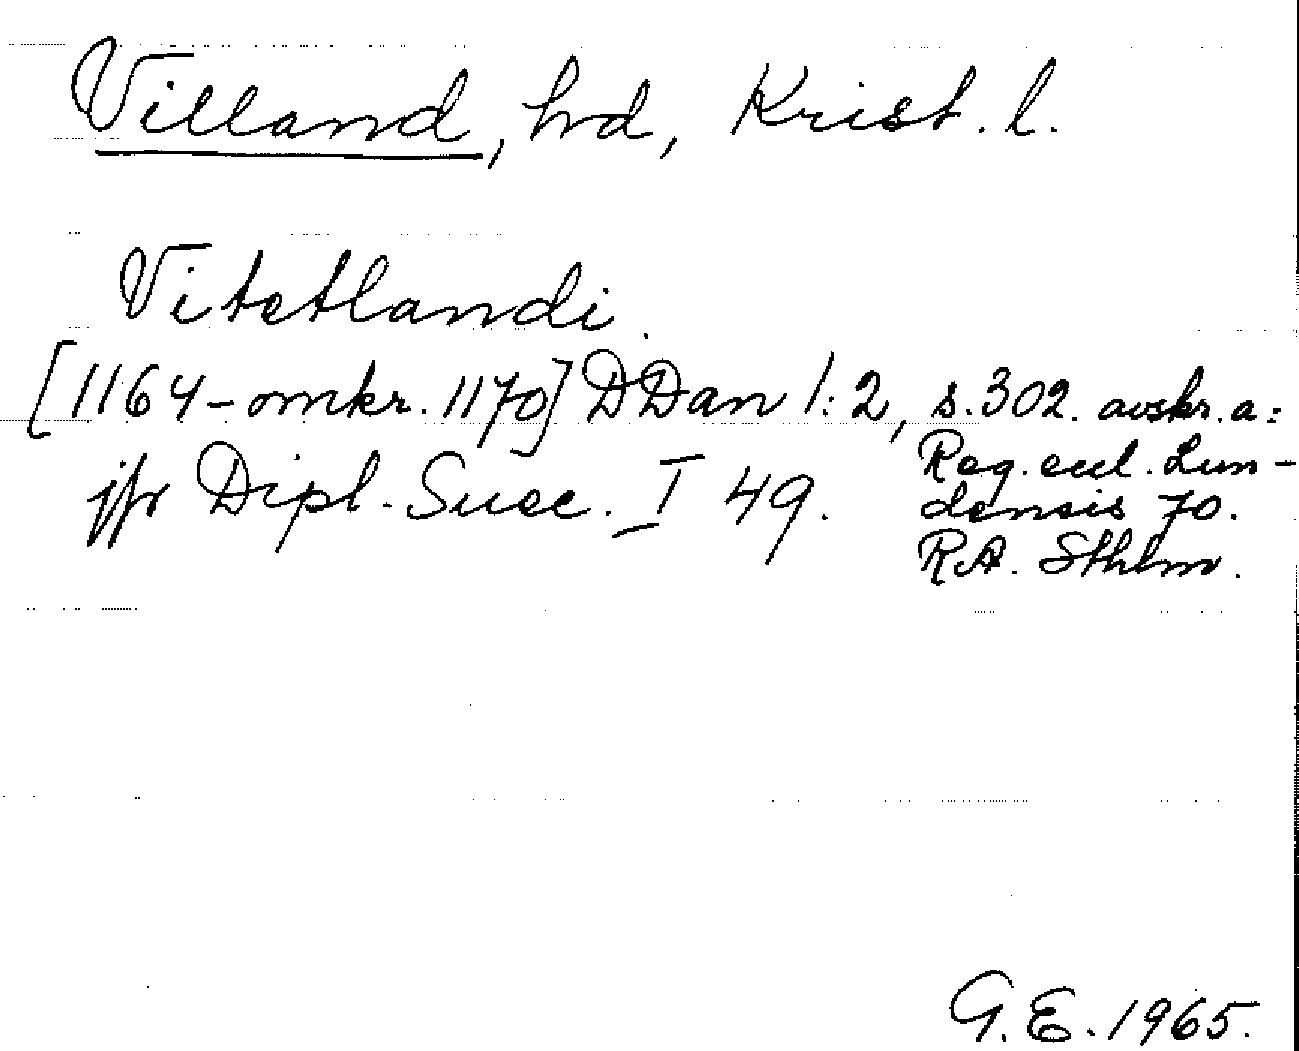 Villand, hd, Krist. l.
Vitetlandi.
[1164-omkr. 1170] DDan 1:2, s. 302. avskr. a:
jfr Dipl. Suec. I 49.
Reg. eccl. Lun-
densis 70.
RA. Sthlm.
G.E. 1965.